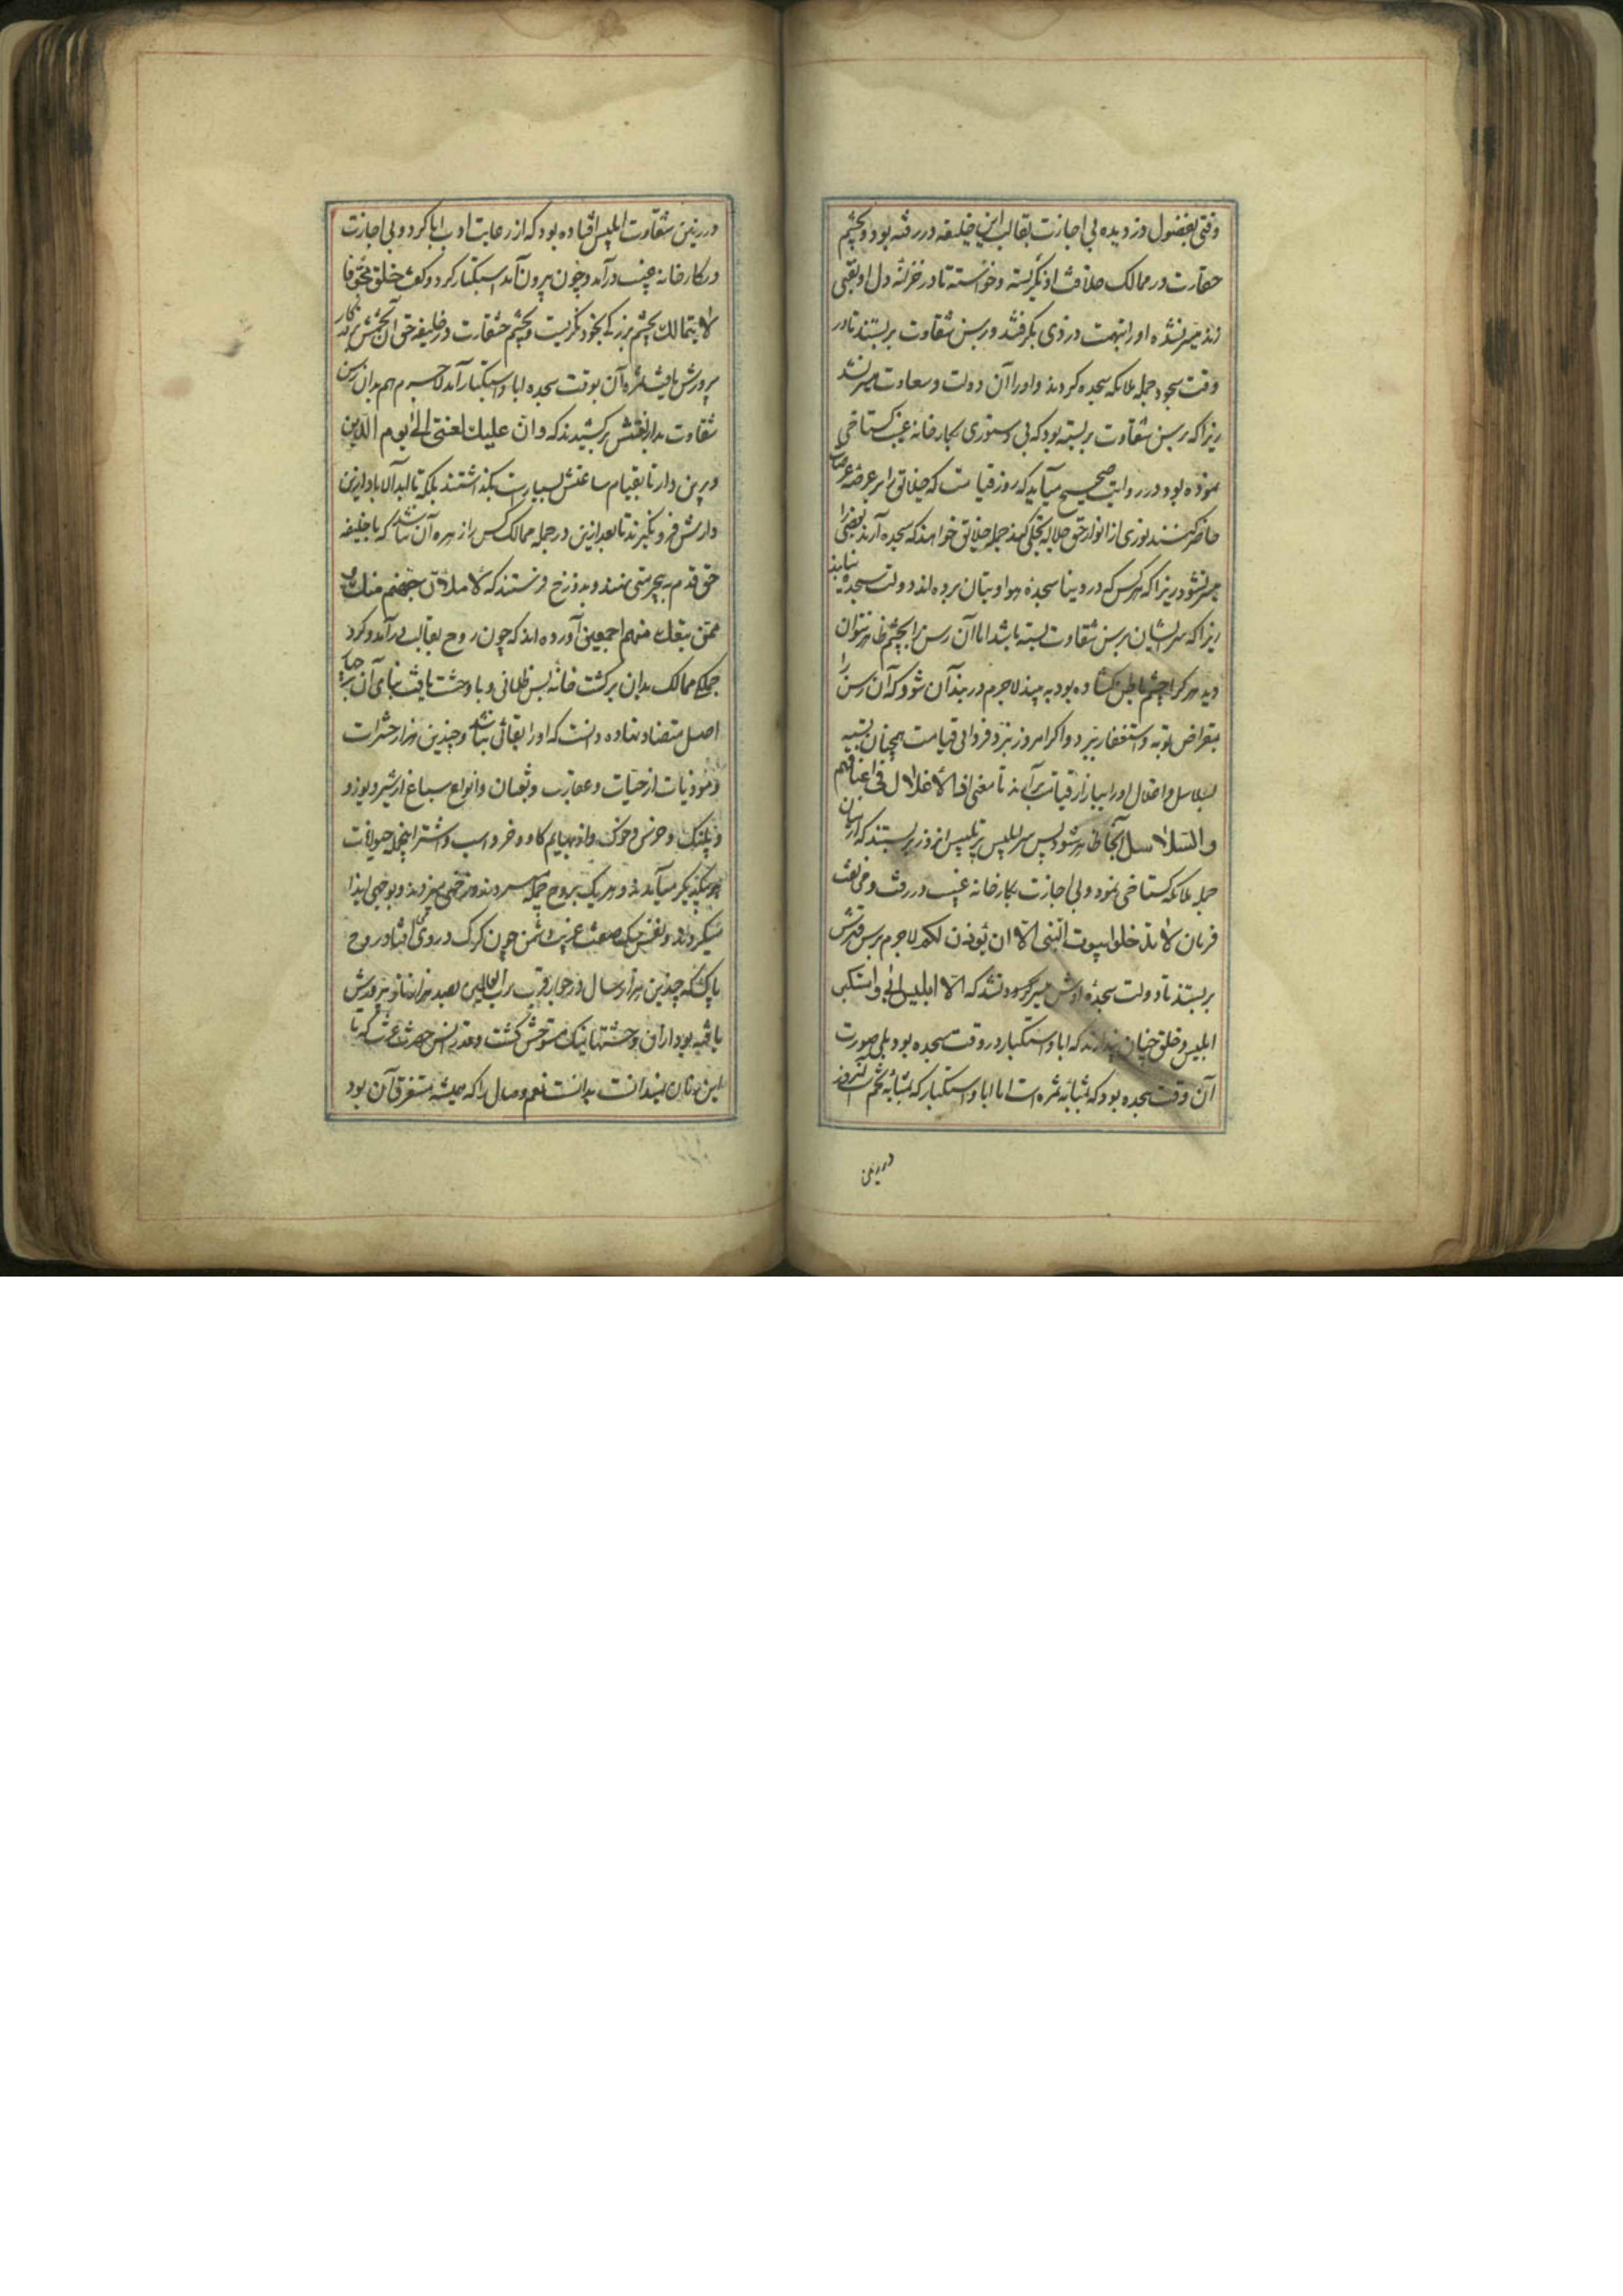 وقتی بفضول دزدیده بی اجازت بقالب این خلیفه در رفته بود و بچشم
حقارت در ممالک خلافت او نگریسته و خواسته تا در خزانه دل او نقبی
زند میسر نشده او را بتهمت دزدی بگرفتند و برسن شقاوت بربستند تا در
وقت سجود جمله ملائکه سجده کردند و او را آن دولت و سعادت میسر نشد
زیرا که برسن شقاوت بربسته بود که بی دستوری بکارخانه غیب گستاخی
نموده بود و در روایت صحیح میآید که روز قیامت که خلایق را بر عرضه عرصات
حاضر کنند نوری از انوار حق جلاله تجلی کند جمله خلائق خواهند که سجده آرند بعضی را
میسر نشود زیرا که هر کس که در دنیا سجده هوا و بتان برده اند دولت سجده نیابند
زیرا که سر ایشان برسن شقاوت بسته باشد اما آن رسن را بچشم ظاهر نتوان
دید هر کرا چشم باطن کشاده بود به بیند لاجرم در بند آن شود که آن رسن را
بمقراض توبه و استغفار ببرد و اگر امروز نبرد فردای قیامت همچنان بسته
بسلاسل و اغلال او را بیازار قیامت برآرند تا معنی اذ الاغلال فی اعناقهم
والسلاسل آنجا ظاهر شود پس سر ابلیس پر تلبیس انروز بربستند که از میان
جمله ملائکه گستاخی نمود و بی اجازت بکارخانه غیب در رفت و مخالفت
فرمان لا تدخلوا بیوت النبی الا ان یؤذن لکم لاجرم برسن قهرش
بربستند تا دولت سجده اوش میسر نشد که الا ابلیس ابی واستکبر
ابلیس و خلق چنان پندارند که ابا و استکبار در وقت سجده بود بلی صورت
آن وقت سجده بود که بمثابه ثمره است اما ابا و استکبار که بمثابه تخم است آنروز
در زمین
در زمین شقاوت ابلیس افتاده بود که از رعایت ادب ابا کرد و بی اجازت
در کارخانه غیب درآمد و چون بیرون آمد استکبار کرد و گفت خلق مجوفا
لا یتمالک بچشم بزرگی بخود نگریست و بچشم حقارت در خلیفه حق آن تخمش برقرار
پرورش یافت ثمره آن بوقت سجده ابا و استکبار آمد لاجرم هم بدان رسن
شقاوت بدار لعنتش برکشیدند که وان علیک لعنتی الی یوم الدین
و برین دار تا بقیام ساعتش بسیاست بگذاشتند بلکه تا ابد الاباد ازین
دارش فرو نگیرند تا بعد ازین در جمله ممالک کس را زهره آن نباشد که با خلیفه
حق قدم به بیحرمتی نهند و بدوزخ فرستند که لاملان جهنم منک و
ممن تبعک منهم اجمعین آورده اند که چون روح بقالب درآمد و گرد
جملگی ممالک بدن برگشت خانه بس ظلمانی و با وحشت یافت بنای آن بر چهار
اصل متضاد نهاده دانست که او را بقائی نباشد و چندین هزار حشرات
و موذیات از حیات و عقارب و ثعبان و انواع سباع از شیر و یوز و
و پلنگ و خرس و خوک و از بهایم گاو و خر و اسب و اشتر و جمله حیوانات
یکدیگر میآیند و هر یک بروح حمله میبردند و زخمی میزدند و بوجهی ایذا
میکردند و نفس سگ صفت غریب دشمن چون گرگ در وی افتاد روح
پاک که چندین هزار سال در جوار قرب رب العالمین بصد هزار ناز پرورش
یافته بود از آن وحشتها نیک متوحش گشت و قدر انس حضرت عزت که تا
این زمان نمیدانست بدانست نعم وصال را که همیشه مستغرق آن بود